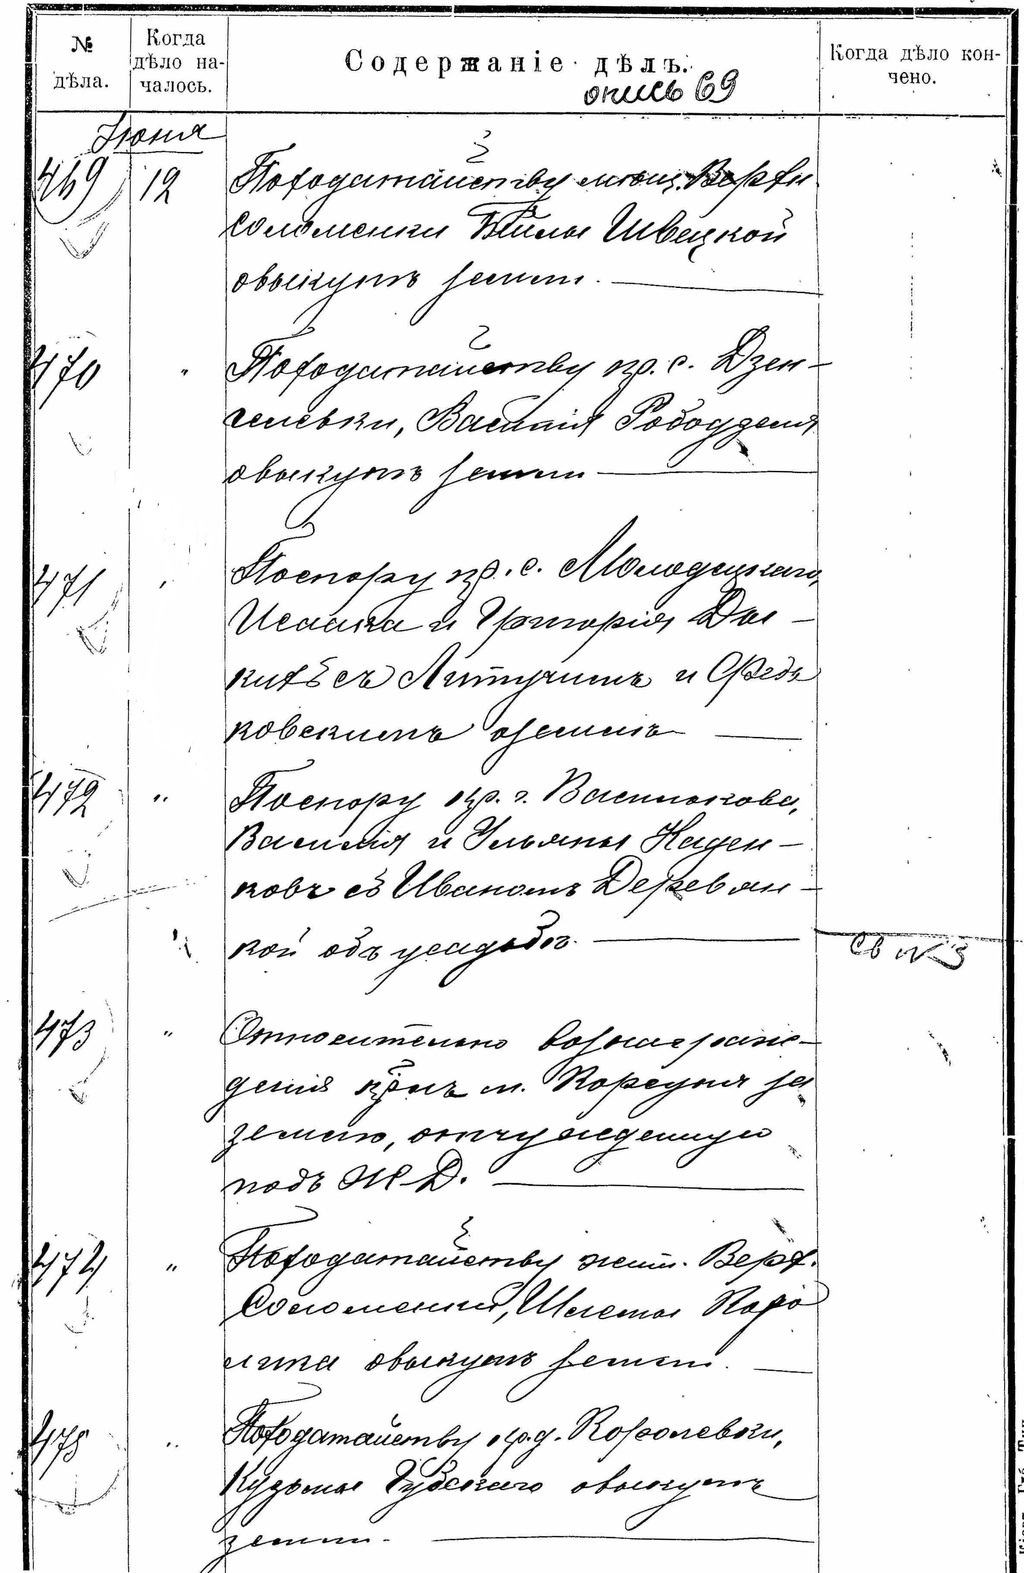 № дѣла.
Когда дѣло на-
чалось.
Содержаніе дѣлъ.
Когда дѣло кон-
чено.
опись 69
Июня
469 12 По ходатайству мѣщ. Верхн
Соломенки Бейлы Швецкой
о выкупѣ земли.
470 " По ходатайству кр. с. Дзен-
гелевки, Василія
о выкупѣ земли
471 " По спору кр. с. Молодецкаго,
Исаака и Григорія Ды-
съ и Федь
ковскимъ о землѣ
472 " По спору кр. г. Василькова,
Василія и Ульяны Наден-
ковъ съ Иваномъ Деревян-
кой объ усадьбѣ.
св №3
473 " Относительно вознагражде-
денія крѣпъ м. Корсуня за
землю, отчужденную
подъ Ж-Д.
474 " По ходатайству жит. Верх.
Соломенки, Шлемы Каро
лика о выкупѣ земли.
475 " По ходатайству кр. д. Королевки,
Кузьмы Губскаго о выкупѣ
земли.